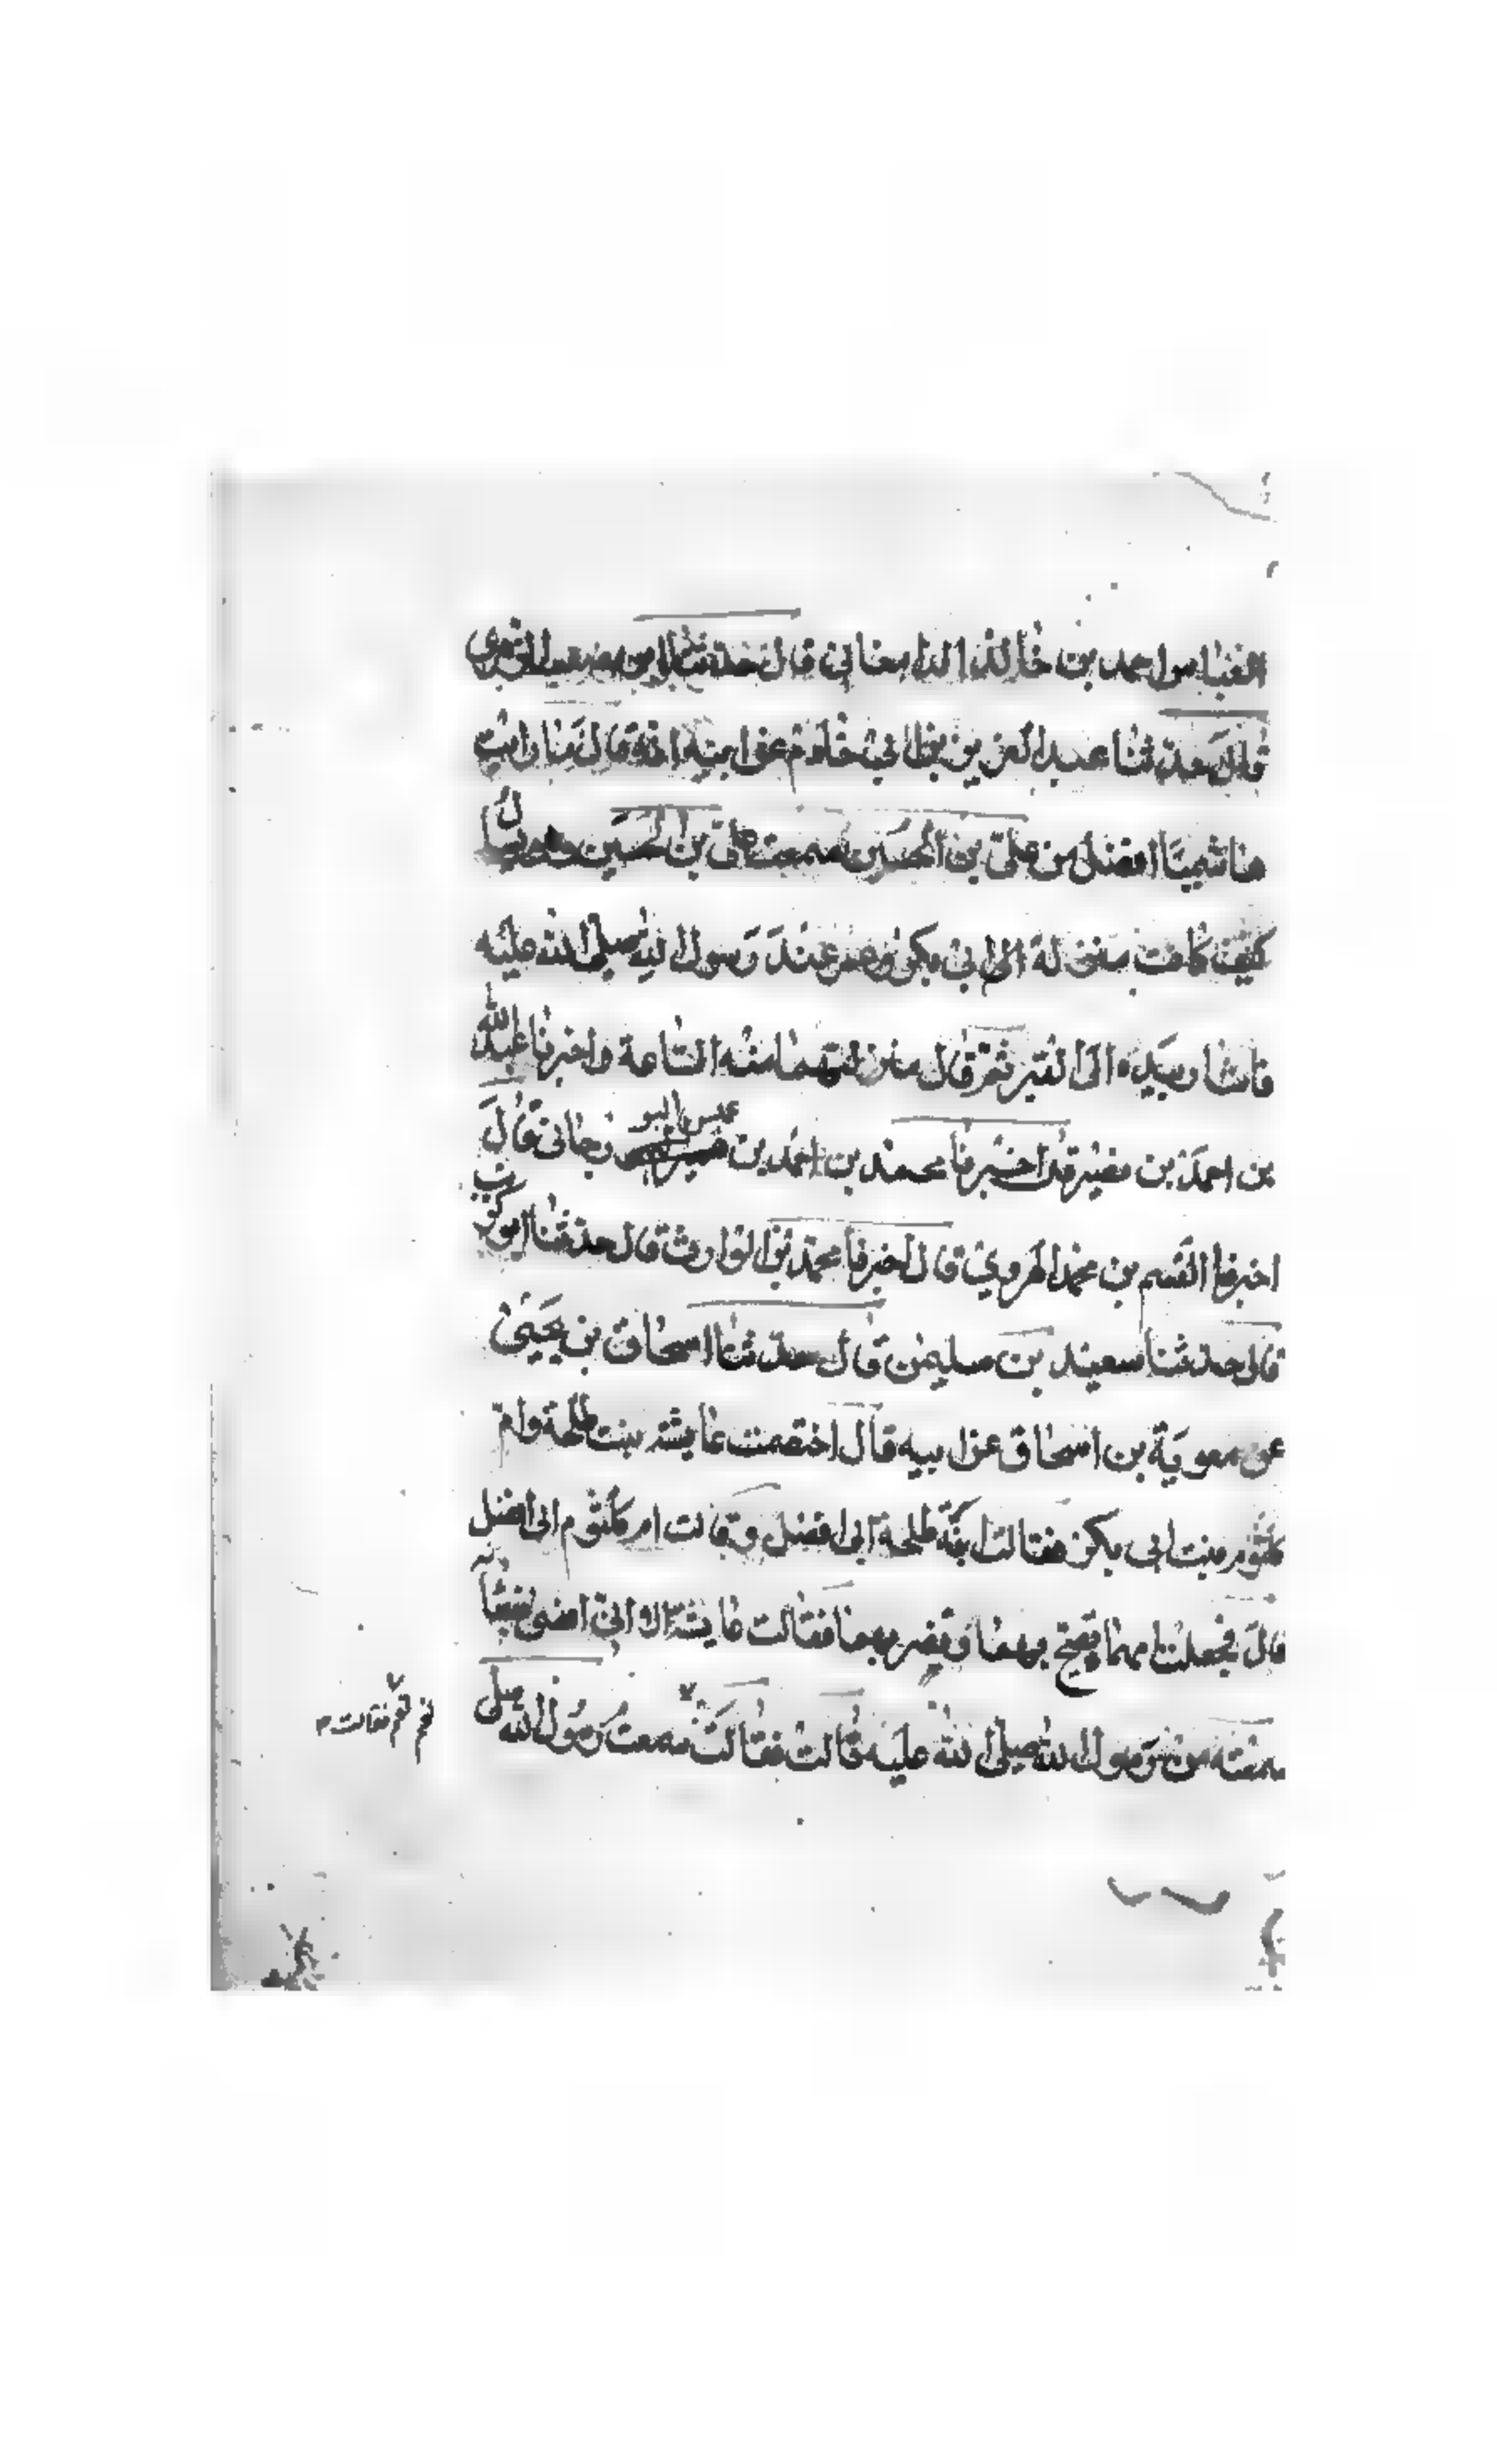 العباس احمد بن خالد الدامغاني قال حدثنا ابو مصعب الزهري
قال حدثنا عبد العزيز بن ابي حازم عن ابيه انه قال ما رايت
هاشميا افضل من علي بن الحسين سمعت علي بن الحسين وهو يسأل
كيف كانت منزلة ابي بكر وعمر عند رسول الله صلى الله عليه
فاشار بيده الى القبر ثم قال منزلتهما منه الساعة واخبرنا عبد الله
بن احمد بن قال اخبرنا محمد بن احمد بن قال
اخبرنا القسم بن محمد الهروي قال اخبرنا محمد بن الوارث قال حدثنا ابو كريب
قال حدثنا سعيد بن سليمن قال حدثنا اسحاق بن يحيى
عن معوية بن اسحاق عن ابيه قال اختصمت عايشة بنت طلحة وام
كلثوم بنت ابي بكر فقالت ابنة طلحة ابي افضل وقالت ام كلثوم ابي افضل
قال فجعلت امهما بهما بهما فقالت عايشة انا اقضي
سمعته من رسول الله صلى الله عليه قالت فقالت سمعت رسول الله صلى
نعم فقالت